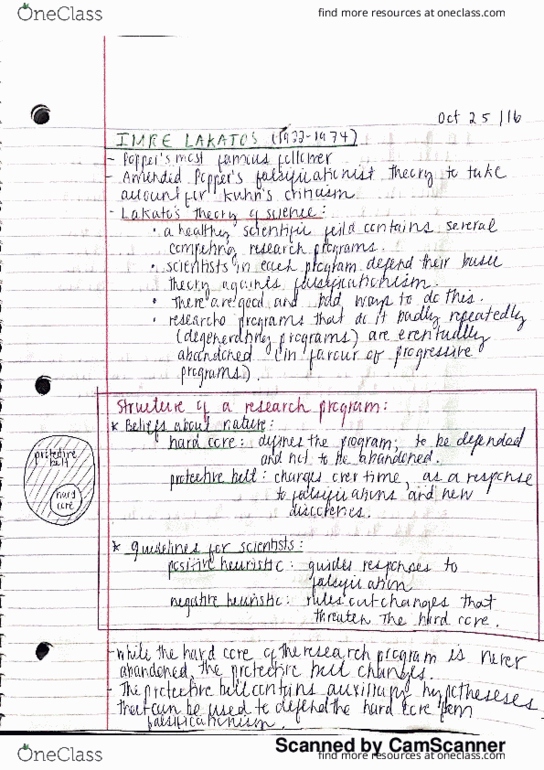 OneClass
find more resources at oneclass.com
Oct 25/16
IMRE LAKATOS (1922-1974)
- Popper's most famous follower
- Amended Popper's falsificationist theory to take
account for Kuhn's criticism
- Lakato's theory of science:
• a healthy scientific feild contains several
competing research programs.
• scientists in each program defend their basic
theory againts falsificationism.
• There are good and bad ways to do this.
• research programs that do it badly repeatedly
(degenerating programs) are eventually
abandoned (in favour of progressive
programs).
Structure of a research program:
* Beliefs about nature:
hard core: defines the program; to be defended
and not to be abandoned.
protective belt: changes over time, as a response
to falsifications and new
discoveries.
protective
belt
hard
core
* guidelines for scientists:
positive heuristic: guides responses to
falsification
negative heuristic: rules out changes that
threaten the hard core.
- While the hard core of the research program is never
abandoned, the protective belt changes.
- The protective belt contains auxiliary hypotheseses
that can be used to defend the hard core from
falsificationism.
Scanned by CamScanner
OneClass
find more resources at oneclass.com